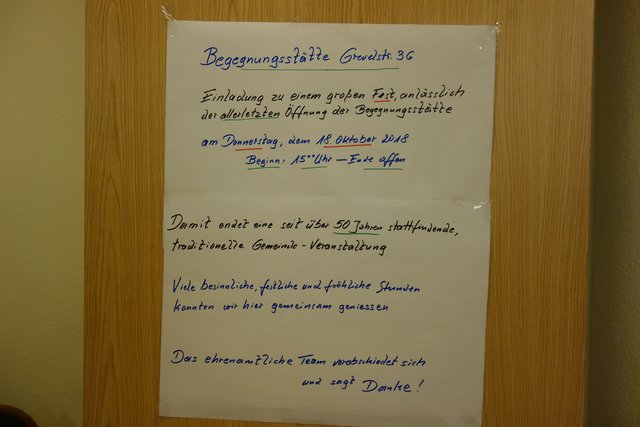 Begegnungsstätte Grevelstr. 36
Einladung zu einem großen Fest, anlässlich
der allerletzten Öffnung der Begegnungsstätte
am Donnerstag, dem 18. Oktober 2018
Beginn: 15°° Uhr – Ende offen
Damit endet eine seit über 50 Jahren stattfindende,
traditionelle Gemeinde-Veranstaltung
Viele besinnliche, festliche und fröhliche Stunden
konnten wir hier gemeinsam geniessen
Das ehrenamtliche Team verabschiedet sich
und sagt Danke!